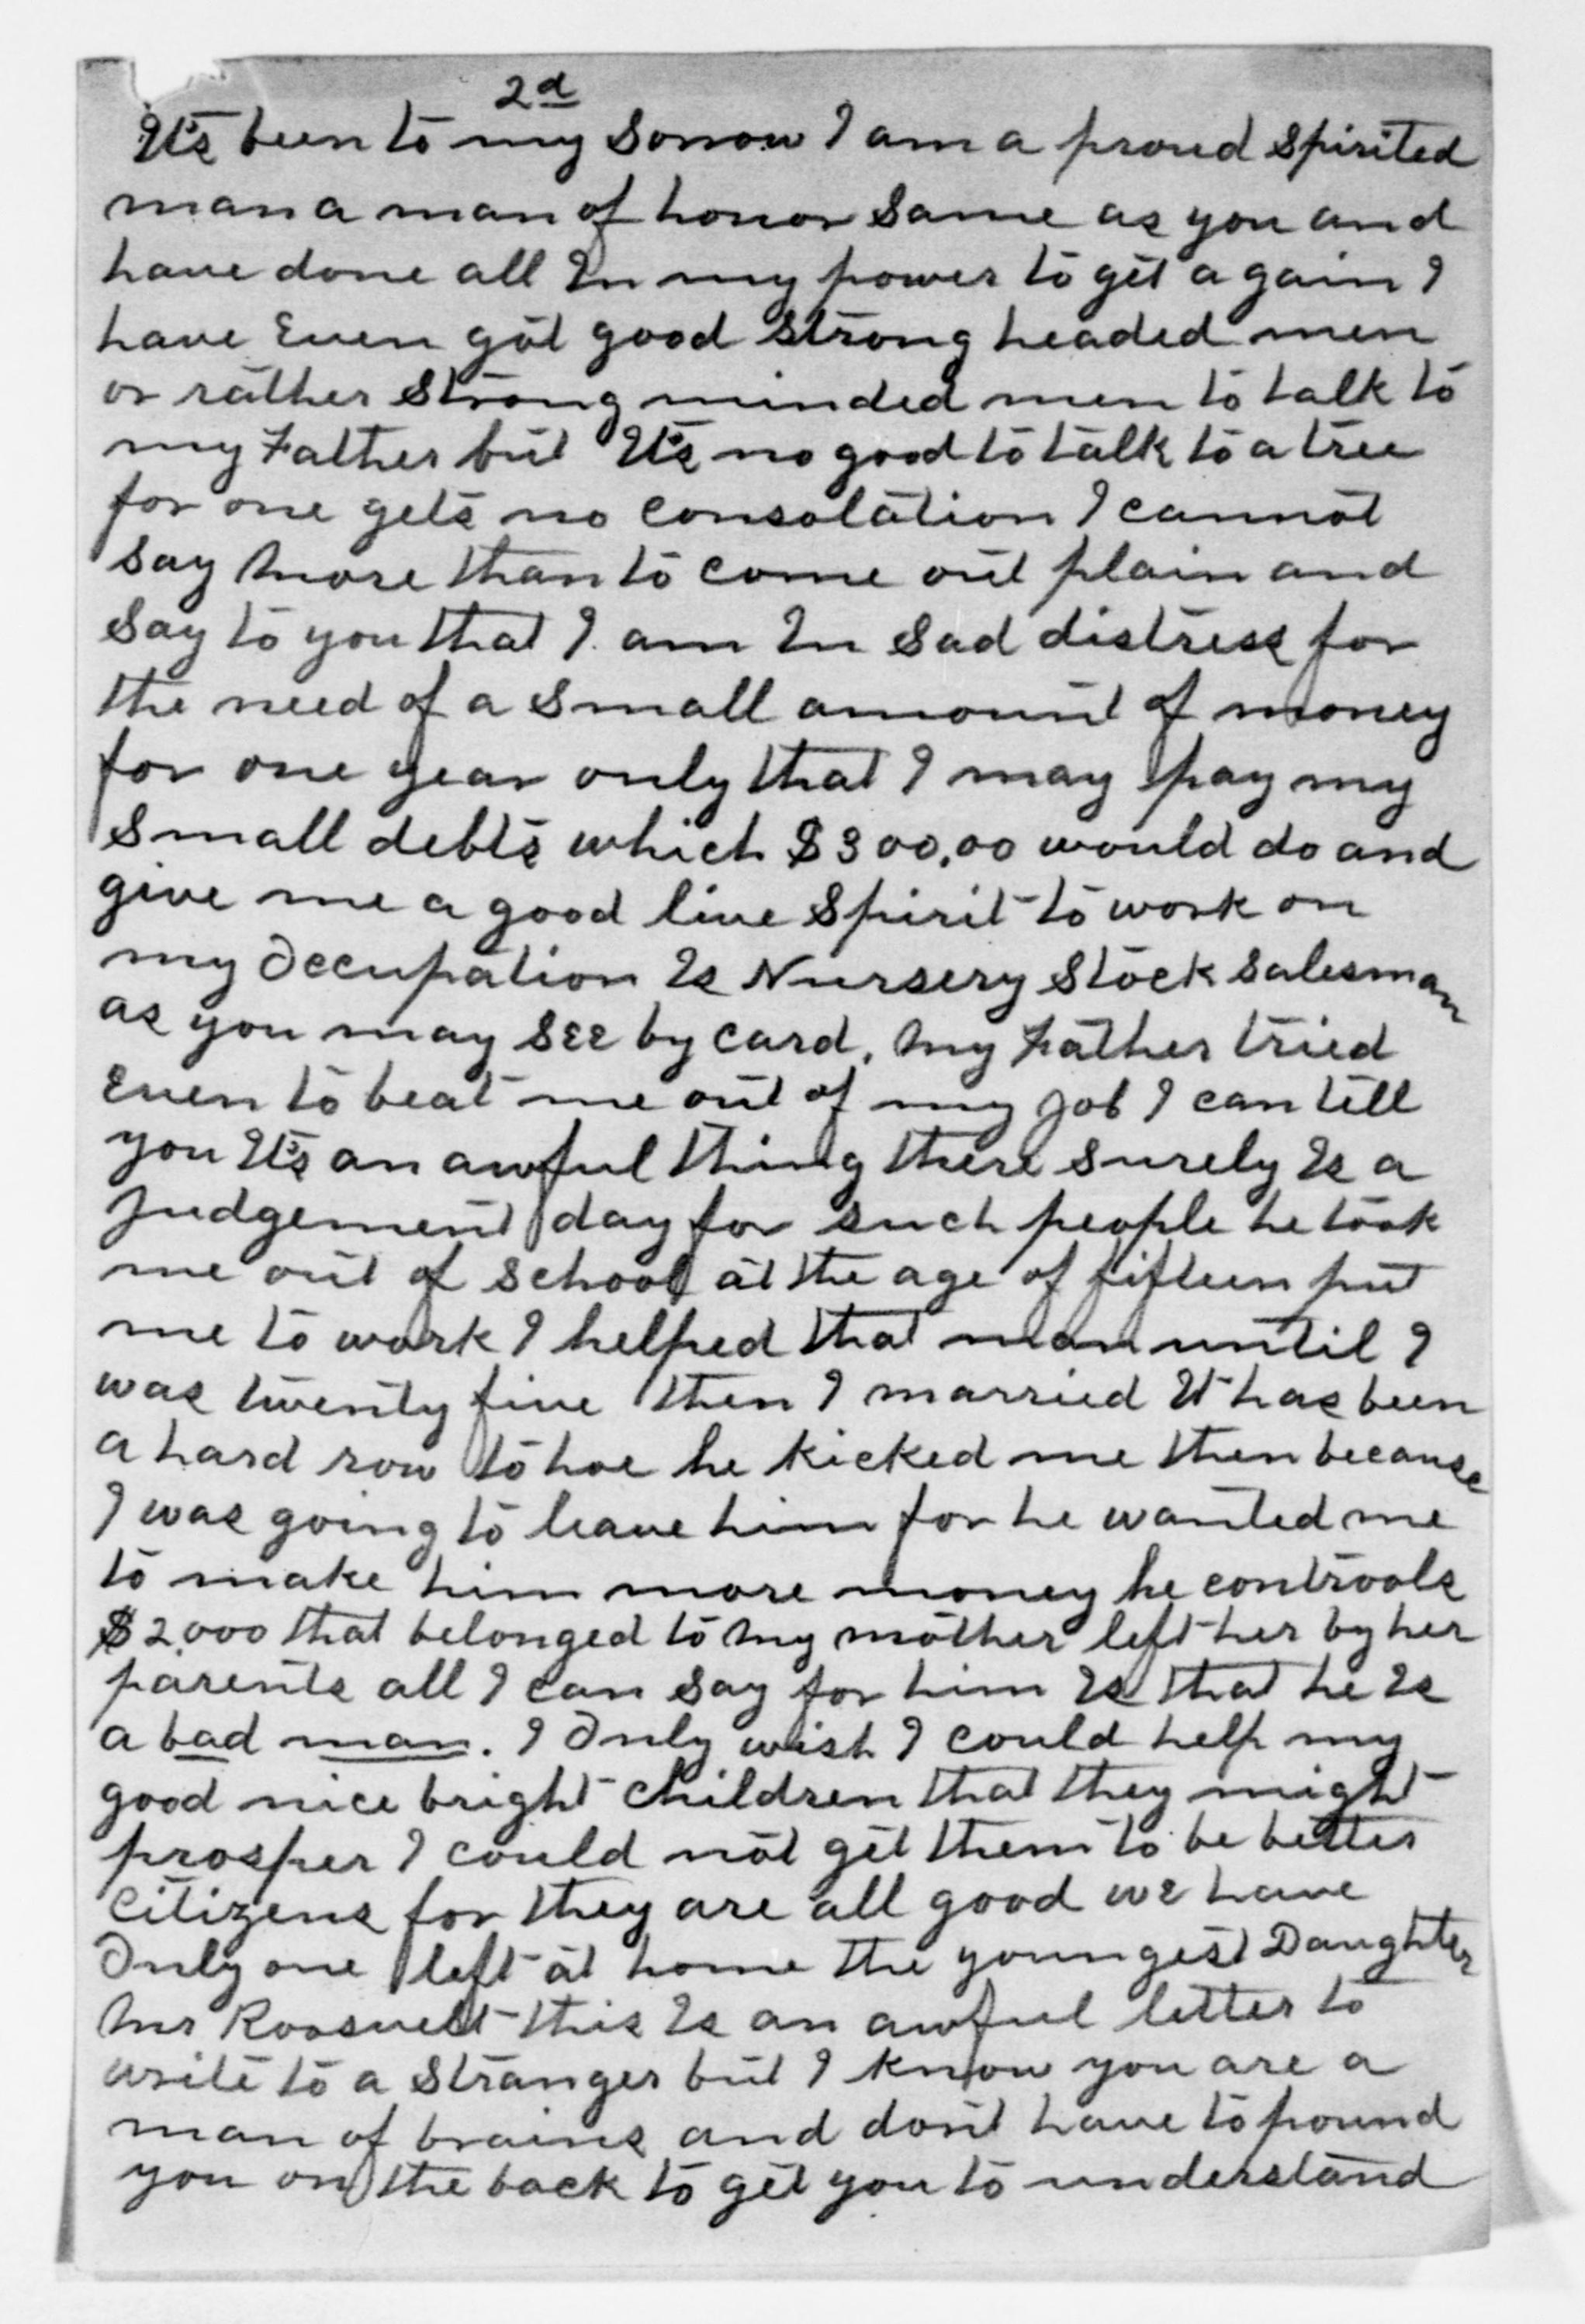 2d
It's been to my sorrow I am a proud spirited
man a man of honor same as you and
have done all In my power to get a gain I
have Even got good strong headed men
or rather strong minded men to talk to
my Father but It's no good to talk to a tree
for one gets no consolation I cannot
say more than to come out plain and
say to you that I am In sad distress for
the need of a small amount of money
for one year only that I may pay my
small debts which $300.00 would do and
give me a good live spirit to work on
my Occupation Is Nursery Stock salesman
as you may see by card, my Father tried
Even to beat me out of my job I can tell
you It's an awful thing there surely Is a
Judgement day for such people he took
me out of school at the age of fifteen put
me to work I helped that man until I
was twenty five then I married It has been
a hard row to hoe he kicked me then because
I was going to leave him for he wanted me
to make him more money he controols
$2,000 that belonged to my mother left her by her
parents all I can say for him Is that he Is
a bad man. I Only wish I could help my
good nice bright children that they might
prosper I could not get them to be better
citizens for they are all good we have
Only one left at home the youngest Daughter
Mr Roosvelt this Is an awful letter to
write to a stranger but I know you are a
man of brains and don't have to pound
you on the back to get you to understand